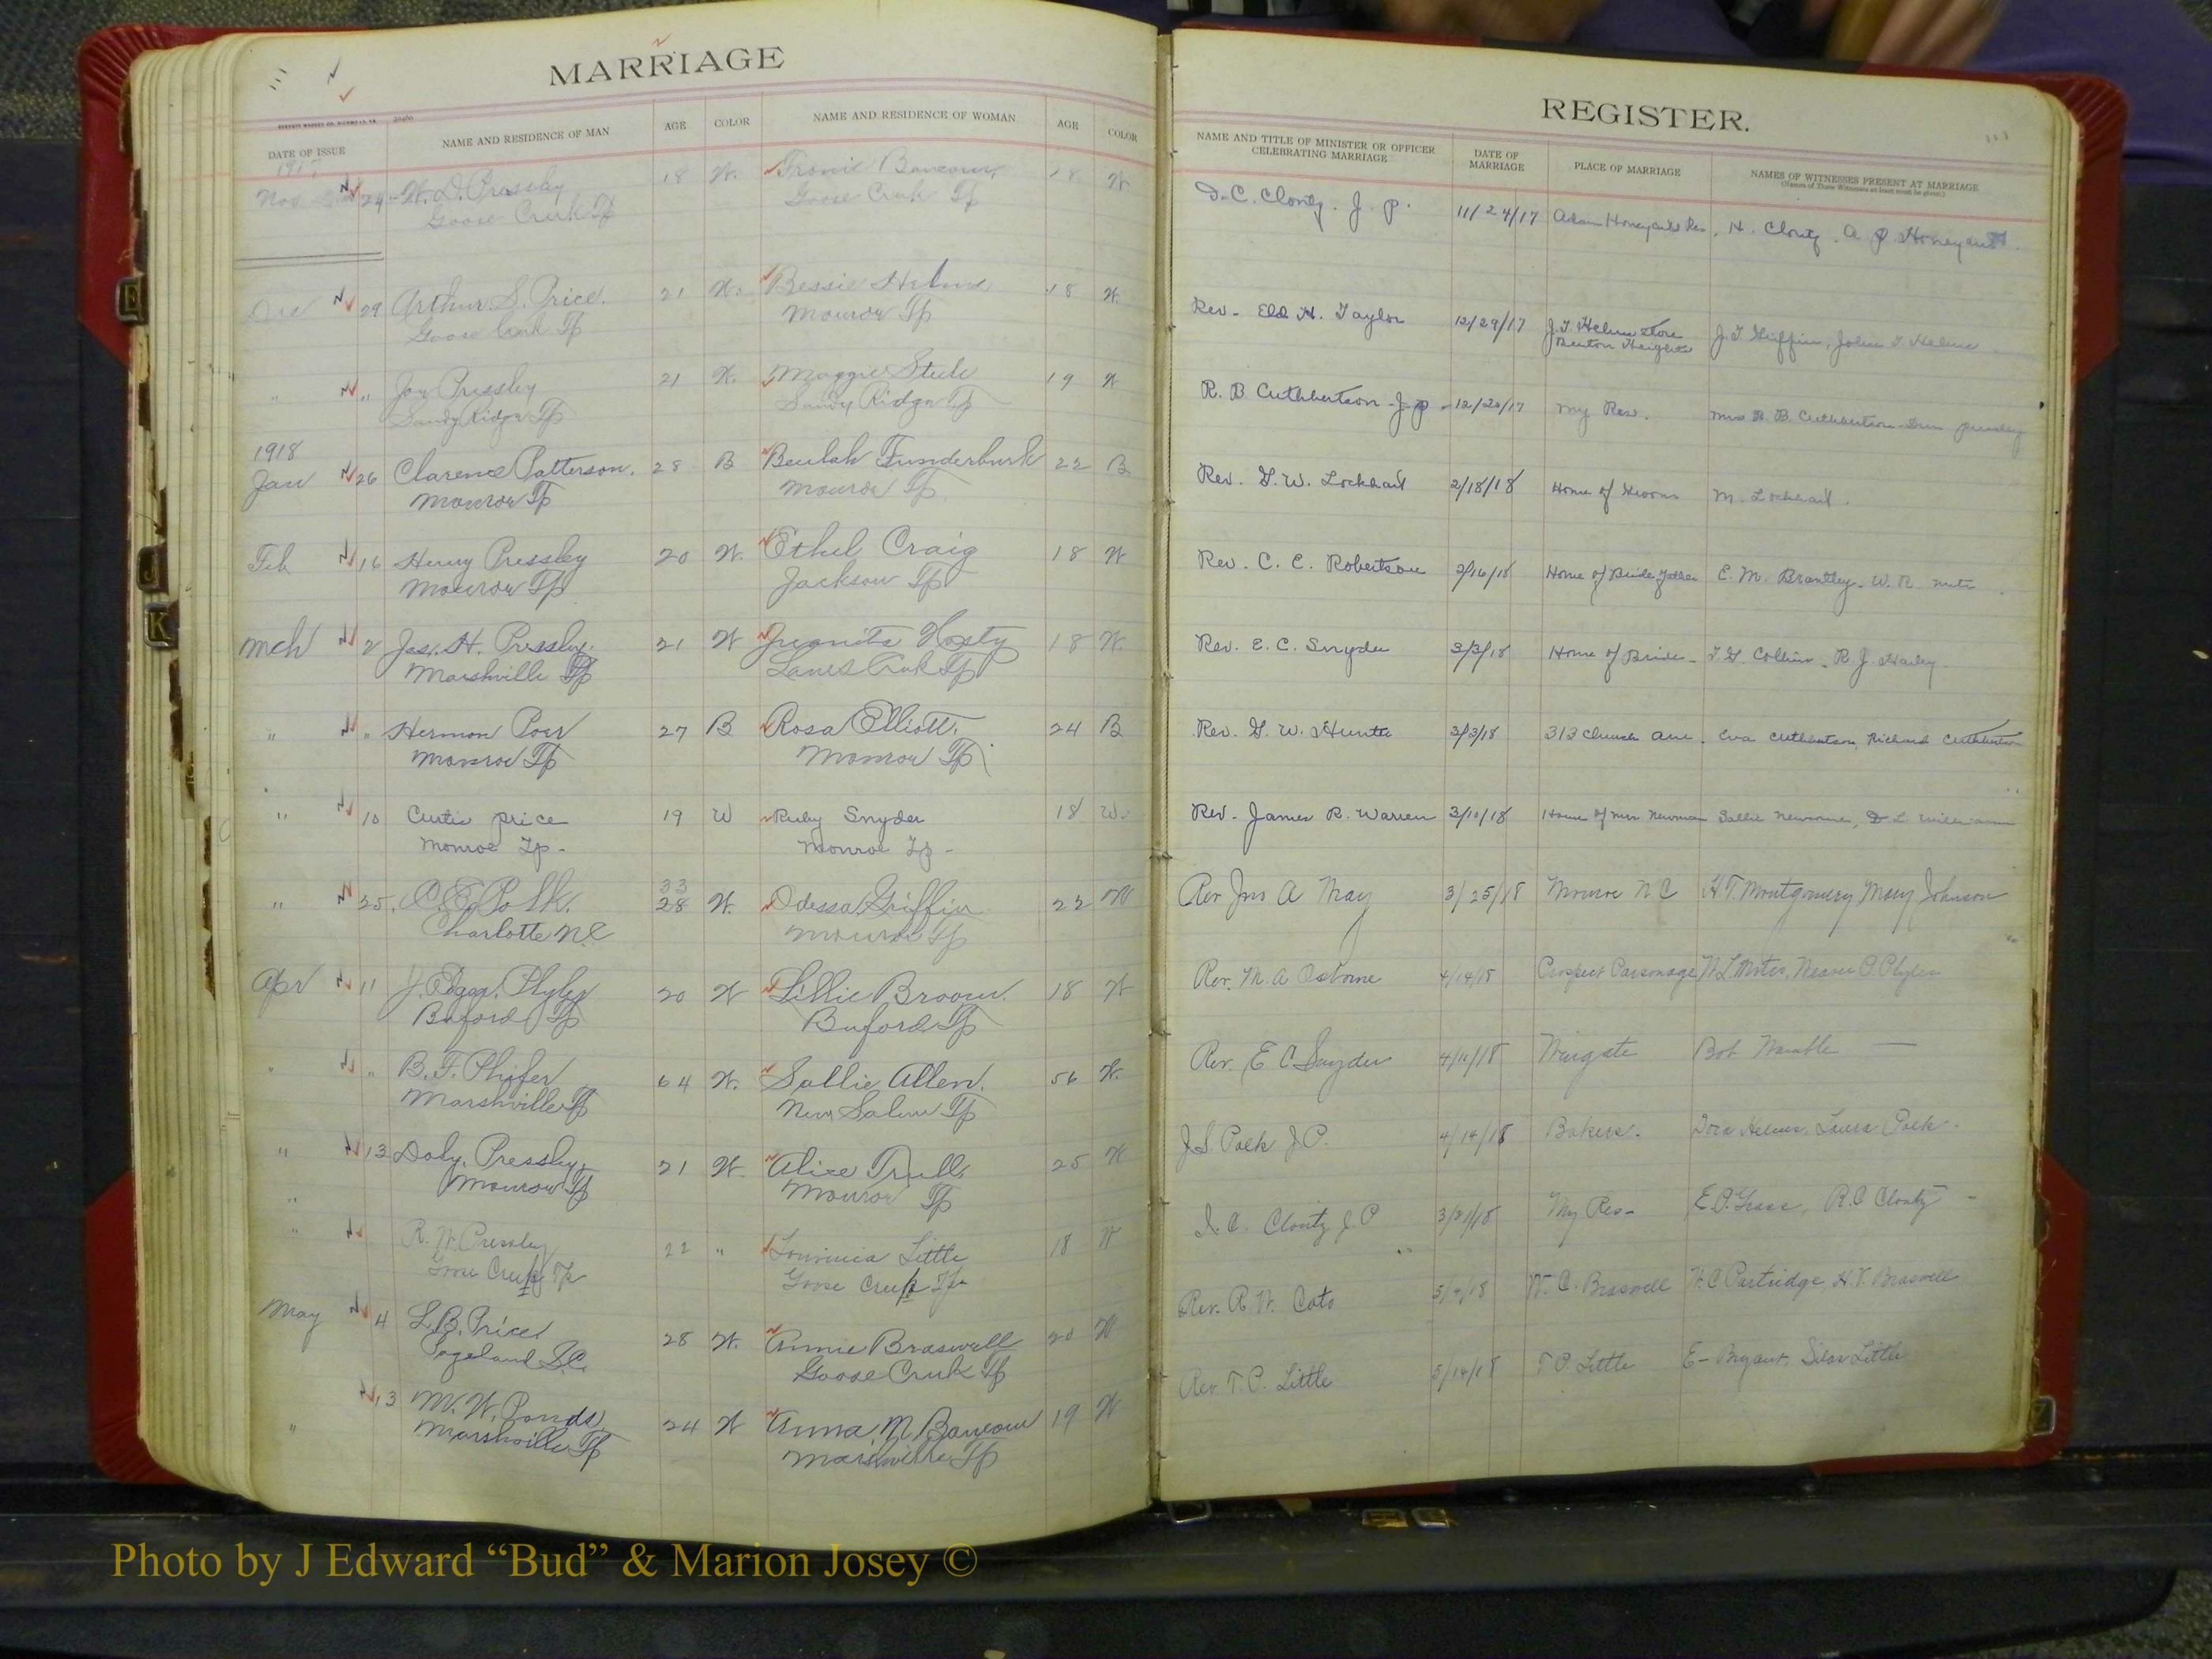 MARRIAGE
DATE OF ISSUE NAME AND RESIDENCE OF MAN AGE COLOR NAME AND RESIDENCE OF WOMAN AGE COLOR
Nov 24 W. D. Pressley 18 W. 18 W
Goose Creek Tp Goose Creek Tp
Dec 29 Arthur S. Price. 21 W. Bessie Helms 18 W.
Goose Creek Tp Monroe Tp
" " Pressley 21 W. Maggie Steele 19 W
Sandy Ridge Tp Sandy Ridge Tp
1918
Jan 26 Clarence Patterson. 28 B Beulah Funderburk 22 B
Monroe Tp Monroe Tp
Feb 16 Henry Pressley 20 W. Ethel Craig 18 W
Monroe Tp Jackson Tp
Mch 2 Jas. H. Pressley. 21 W Juanita 18 W.
Marshville Tp Lanes Creek Tp
" " Hermon Poer 27 B Rosa Elliott. 24 B
Monroe Tp Monroe Tp
" 10 Curtis Price 19 W Ruby Snyder 18 W.
Monroe Tp - Monroe Tp -
" 25. Polk. 33 28 W. Odessa Griffin 22 W
Charlotte N.C Monroe Tp
Apr 11 J. Edgar Plyler 20 W Lillie Broom. 18 W
Buford Tp Buford Tp
" " B. F. Phifer 64 W. Sallie Allen. 56 W.
Marshville Tp New Salem Tp
" 13 Doly. Pressley, 21 W. Alice Trull, 25 W
Monroe Tp Monroe Tp
" R. W. Pressley 22 " Little 18 W
Goose Creek Tp Goose Creek Tp
May 4 L. B. Price 28 W. Annie Braswell 20 W
Pageland S.C. Goose Creek Tp
" 13 M. W. Ponds, 24 W Anna M Baucom 19 W
Marshville Tp Marshville Tp
REGISTER.
NAME AND TITLE OF MINISTER OR OFFICER CELEBRATING MARRIAGE DATE OF MARRIAGE PLACE OF MARRIAGE NAMES OF WITNESSES PRESENT AT MARRIAGE
(Names of Three Witnesses at least must be given.)
D. C. Clontz. J. P. 11/24/17 Adam Honeycutt Res. H. Clontz. A P. Honeycutt.
Rev. Eld H. Taylor 12/29/17 J. T. Helms Store J. T. Griffin, John T. Helms
Benton Heights
R. B. Cuthbertson - J. P - 12/20/17 My Res. Mrs R. B. Cuthbertson - Pressley
Rev. G. W. Lockhart 2/18/18 Home of Groom M. Lockhart.
Rev. C. C. Robertson 2/16/18 Home of Bride Father E. M. Brantley. W. R.
Rev. E. C. Snyder 3/3/18 Home of Bride - T. G. Collins. R. J.
Rev. G. W. Hunter 3/3/18 313 Church Ave. Eva Cuthbertson, Richard Cuthbertson
Rev. James R. Warren 3/10/18 Home of Mrs Newman Sallie
Rev Jno A May 3/25/18 Monroe N C H. T. Montgomery Mary Johnson
Rev. M. A Osborne 4/14/18 Prospect Parsonage
Rev. E C Snyder 4/11/18 Wingate Bob —
J. S. Polk J. P. 4/14/18 Bakers. Helms, Laura Polk.
D. C. Clontz J P 3/31/18 My Res - R. C Clontz -
Rev. R. W. Cato 5/4/18 W. C. Braswell W. C Partridge, H. V. Braswell
Rev. T. P. Little 5/14/18 T. P. Little E - Bryant, Silas Little
Photo by J Edward “Bud” & Marion Josey ©